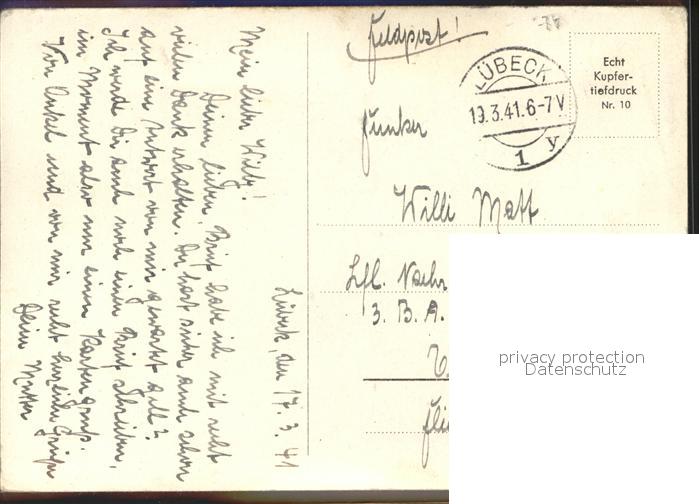 Lübeck, den 17.3.41
Mein lieber Willi!
Deinen lieben Brief habe ich mit recht
vielen Dank erhalten. Du hast sicher auch schon
auf eine Antwort von mir gewartet gell?
Ich werde Dir auch noch einen Brief schreiben,
im Moment aber nur einen Kartengruß.
Von Onkel und von mir recht herzliche Grüße
Deine Mutter
Feldpost!
LÜBECK
19.3.41.6-7V
1 y
Echt
Kupfer-
tiefdruck
Nr. 10
Funker
Willi Matt
Lfl. Nachr
3. B. A.
Flie
privacy protection
Datenschutz